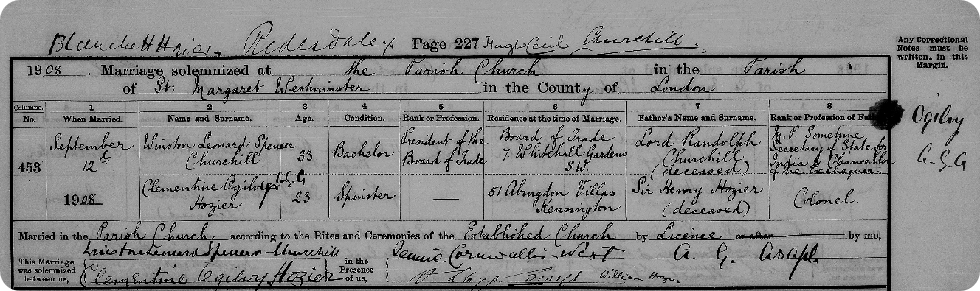 Blanche H Hozier Redesdale Page 227 Hugh Cecil Churchill
1908 Marriage solemnized at the Parish Church in the Parish
of St. Margaret Westminster in the County of London
Any Correctional Notes must be written in this Margin.
Columns:— 1 2 3 4 5 6 7 8
No. When Married. Name and Surname. Age. Condition. Rank or Profession. Residence at the time of Marriage. Father's Name and Surname. Rank or Profession of
453 September 12th 1908
Winston Leonard Spencer Churchill 33 Bachelor President of the Board of Trade Board of Trade 7 Whitehall Gardens S.W. Lord Randolph Churchill (deceased) Sometime Secretary of State for India & Chancellor of the Exchequer
Clementine Ogilvy Hozier 23 Spinster — 51 Abingdon Villas Kensington Sir Henry Hozier (deceased) Colonel
Ogilvy
Married in the Parish Church according to the Rites and Ceremonies of the Established Church by Licence by me,
This Marriage was solemnized between us, Winston Leonard Spencer Churchill in the Presence of us, Jennie Cornwallis West A. G. Asaph
Clementine Ogilvy Hozier